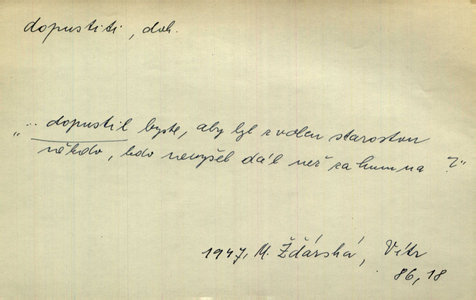 dopustiti, dok.
„... dopustil byste, aby byl zvolen starostou
někdo, kdo nevyšel dál než za humna?"
1947, M. Žďárská, Vítr
86, 18